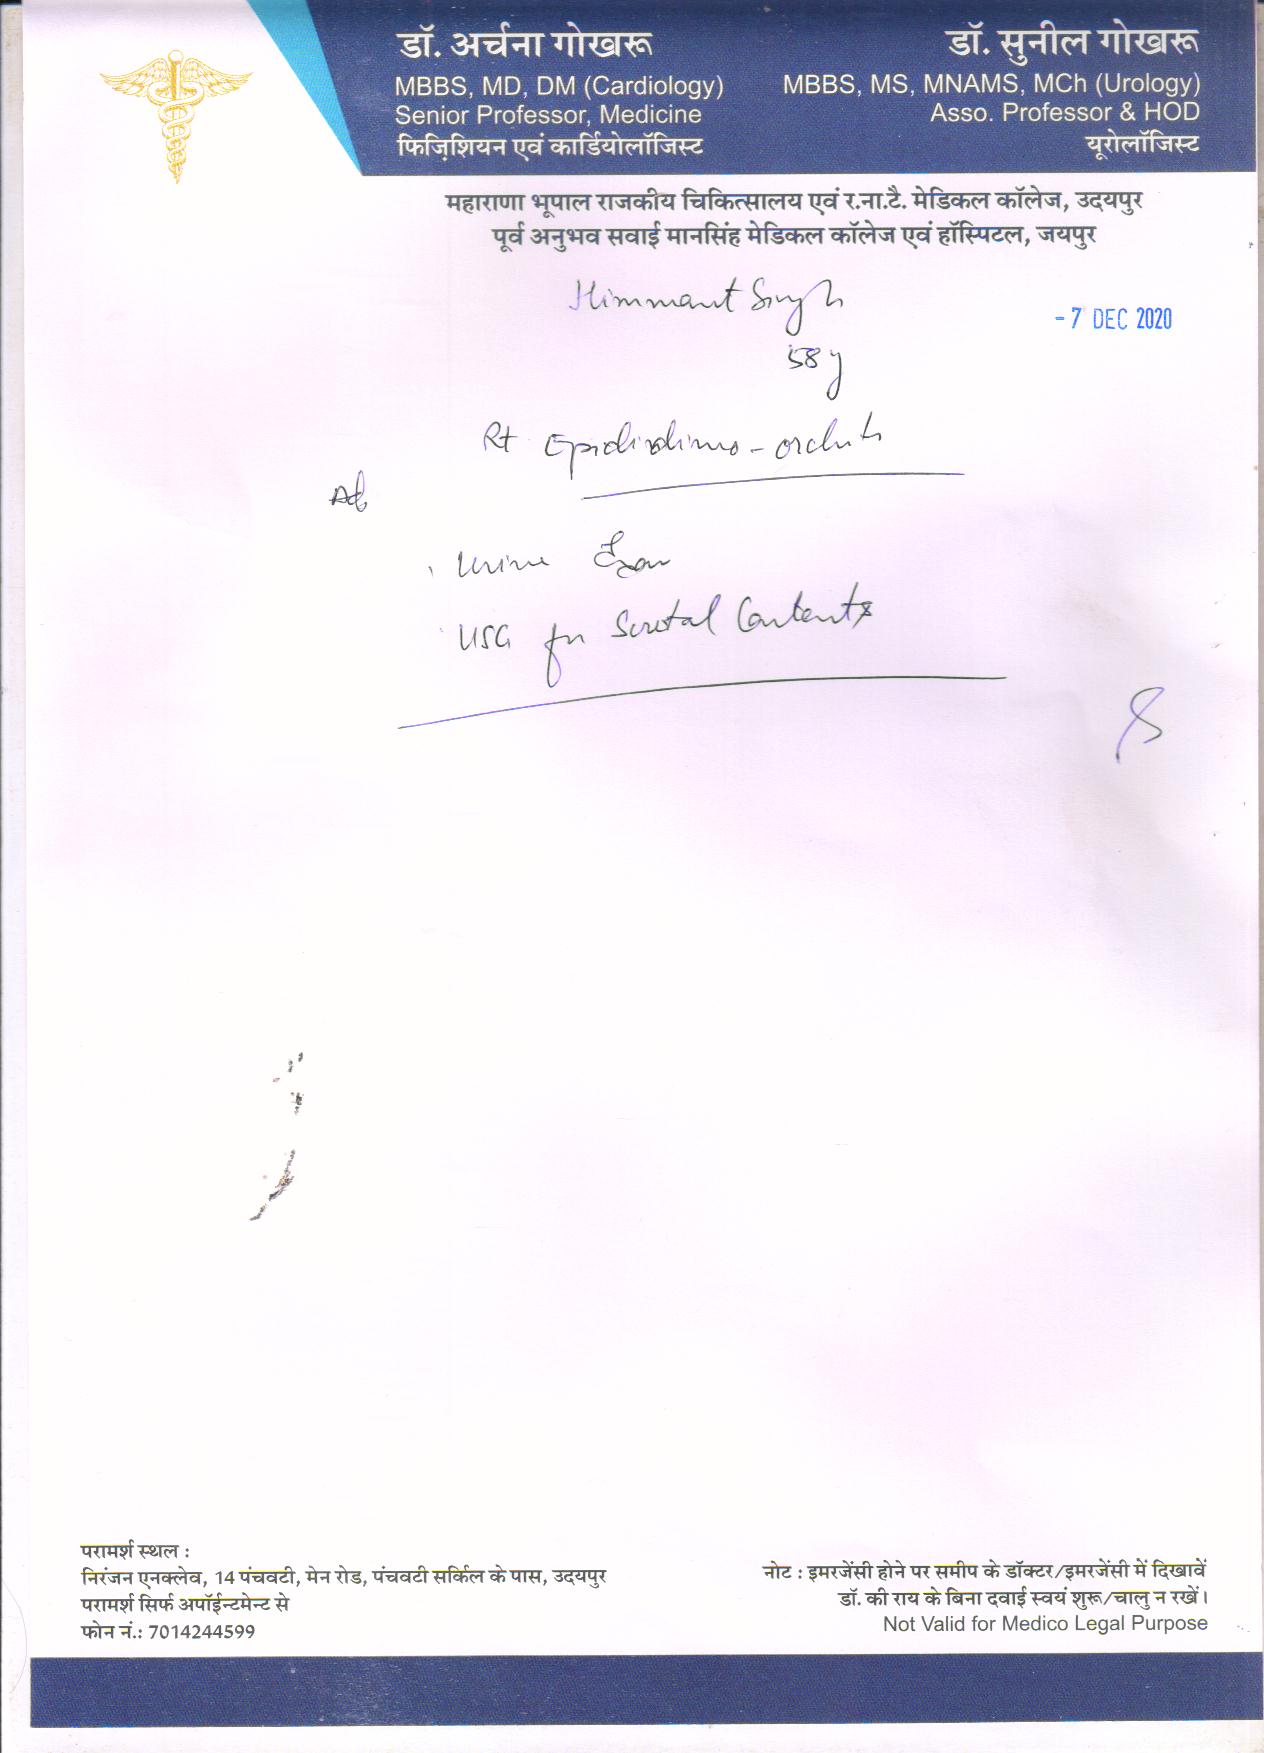 डॉ. अर्चना गोखरू
MBBS, MD, DM (Cardiology)
Senior Professor, Medicine
फिज़िशियन एवं कार्डियोलॉजिस्ट
डॉ. सुनील गोखरू
MBBS, MS, MNAMS, MCh (Urology)
Asso. Professor & HOD
यूरोलॉजिस्ट
महाराणा भूपाल राजकीय चिकित्सालय एवं र.ना.टै. मेडिकल कॉलेज, उदयपुर
पूर्व अनुभव सवाई मानसिंह मेडिकल कॉलेज एवं हॉस्पिटल, जयपुर
Himmant Singh
-7 DEC 2020
58y
Rt Epididimo-orchitis
Urine Exam
USG for Scrotal Contents
परामर्श स्थल :
निरंजन एनक्लेव, 14 पंचवटी, मेन रोड, पंचवटी सर्किल के पास, उदयपुर
परामर्श सिर्फ अपॉईन्टमेन्ट से
फोन नं.: 7014244599
नोट : इमरजेंसी होने पर समीप के डॉक्टर/इमरजेंसी में दिखावें
डॉ. की राय के बिना दवाई स्वयं शुरू/चालु न रखें।
Not Valid for Medico Legal Purpose